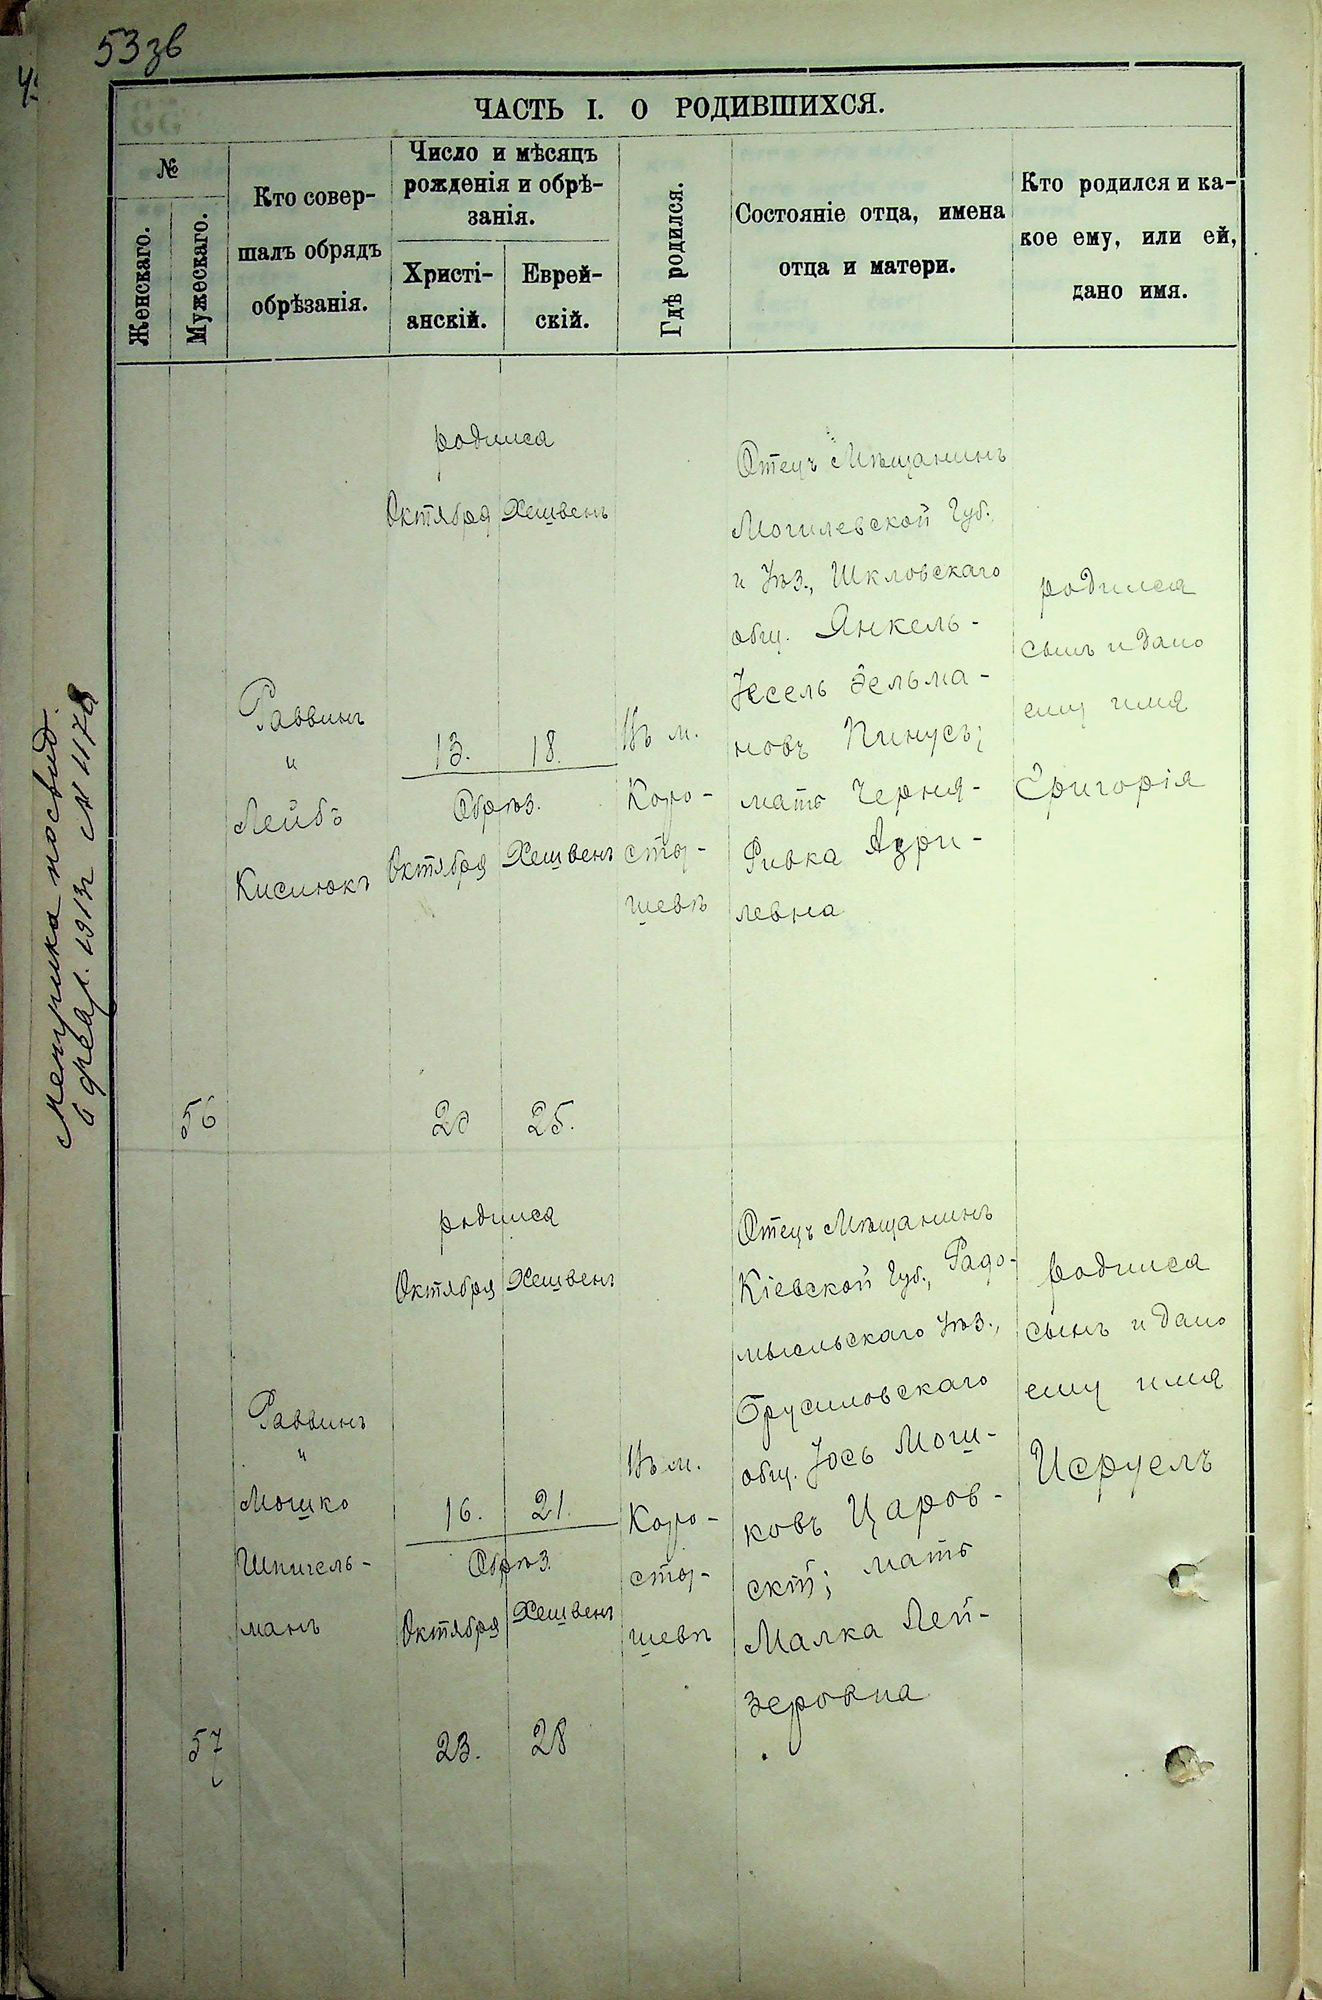 53зв
ЧАСТЬ I. О РОДИВШИХСЯ.
№
Женскаго.
Мужескаго.
Кто совер-
шалъ обрядъ
обрѣзанія.
Число и мѣсяцъ
рожденія и обрѣ-
занія.
Христі-
анскій.
Еврей-
скій.
Гдѣ родился.
Состояніе отца, имена
отца и матери.
Кто родился и ка-
кое ему, или ей,
дано имя.
56
Раввинъ
и
Лейбъ
Кисилюкъ
родился
Октября Хешвенъ
13. 18.
Обрѣз.
Октября Хешвенъ
20 25.
Въ м.
Коро-
сты-
шевѣ
Отецъ Мѣщанинъ
Могилевской Губ.
и Уѣз., Шкловскаго
общ. Янкель-
Іесель Зельма-
новъ Пинусъ;
мать Черня-
Ривка Азри-
левна
родился
сынъ и дано
ему имя
Григорія
57
Раввинъ
и
Мошко
Шпигель-
манъ
родился
Октября Хешвенъ
16. 21.
Обрѣз.
Октября Хешвенъ
23. 28
Въ м.
Коро-
сты-
шевѣ
Отецъ Мѣщанинъ
Кіевской Губ., Радо-
мысльскаго Уѣз.,
Брусиловскаго
общ. Іось Мош-
ковъ Царов-
скій; мать
Малка Лей-
зеровна
родился
сынъ и дано
ему имя
Исруелъ
Метрика посвид.
6 февр. 1913г №